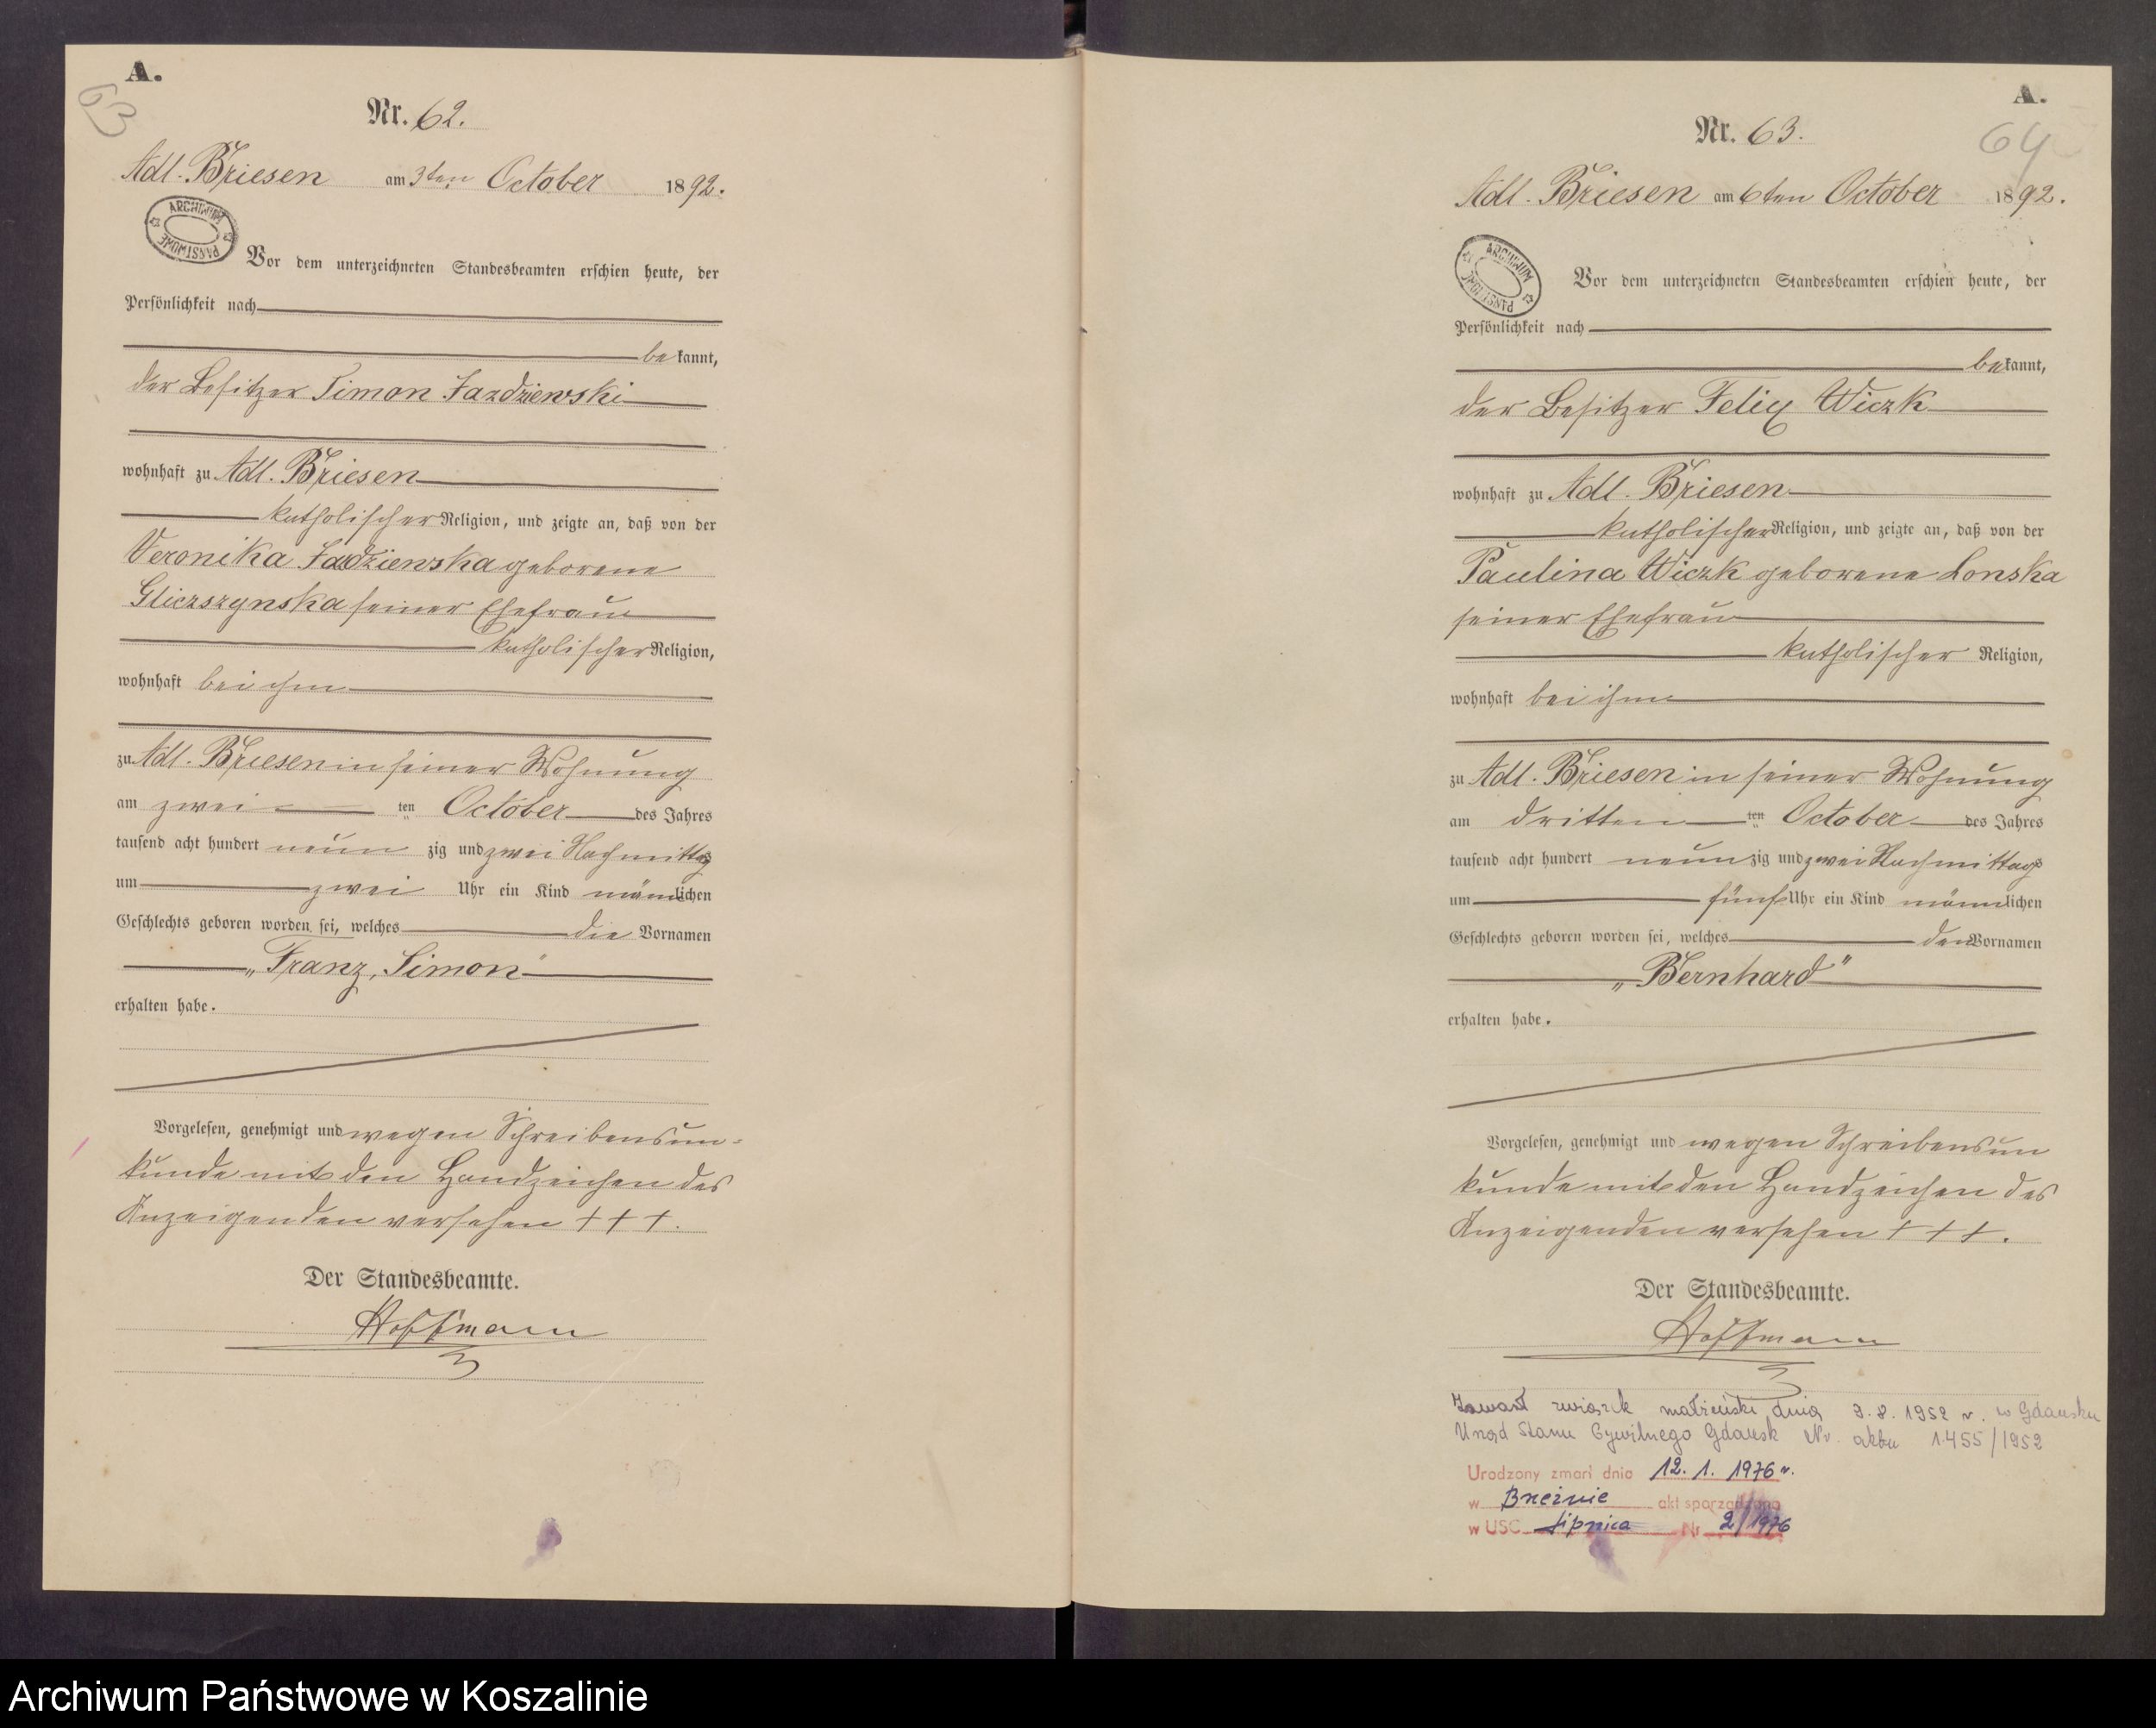 A.
63
Nr. 62.
Adl. Briesen am 3ten October 1892.
ARCHIWUM PAŃSTWOWE
Vor dem unterzeichneten Standesbeamten erschien heute, der
Persönlichkeit nach
bekannt,
der Besitzer Simon Jazdziewski
wohnhaft zu Adl. Briesen
katholischer Religion, und zeigte an, daß von der
Veronika Jazdziewska geborene
Gliczszynska seiner Ehefrau
katholischer Religion,
wohnhaft bei ihm
zu Adl. Briesen in seiner Wohnung
am zwei ten October des Jahres
tausend acht hundert neun zig und zwei Nachmittags
um zwei Uhr ein Kind männlichen
Geschlechts geboren worden sei, welches die Vornamen
„Franz, Simon"
erhalten habe.
Vorgelesen, genehmigt und wegen Schreibensun-
kunde mit den Handzeichen des
Anzeigenden versehen + + +.
Der Standesbeamte.
Hoffmann
A.
64
Nr. 63.
Adl. Briesen am 6ten October 1892.
ARCHIWUM PAŃSTWOWE
Vor dem unterzeichneten Standesbeamten erschien heute, der
Persönlichkeit nach
bekannt,
der Besitzer Felix Wiczk
wohnhaft zu Adl. Briesen
katholischer Religion, und zeigte an, daß von der
Paulina Wiczk geborene Lonska
seiner Ehefrau
katholischer Religion,
wohnhaft bei ihm
zu Adl. Briesen in seiner Wohnung
am dritten ten October des Jahres
tausend acht hundert neun zig und zwei Nachmittags
um fünf Uhr ein Kind männlichen
Geschlechts geboren worden sei, welches den Vornamen
„Bernhard"
erhalten habe.
Vorgelesen, genehmigt und wegen Schreibensun
kunde mit den Handzeichen des
Anzeigenden versehen + + +.
Der Standesbeamte.
Hoffmann
Zawarł związek małżeński dnia 9.8.1952 r. w Gdańsku
Urząd Stanu Cywilnego Gdańsk Nr. aktu 1455/1952
Urodzony zmarł dnia 12. 1. 1976 r.
w Brzeźnie akt sporządzono
w USC Lipnica Nr 2/1976
Archiwum Państwowe w Koszalinie